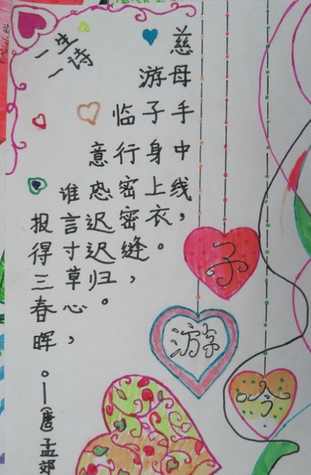 慈母手中线，
游子身上衣。
临行密密缝，
意恐迟迟归。
谁言寸草心，
报得三春晖。—(唐孟郊
一生
一诗
游
子
吟